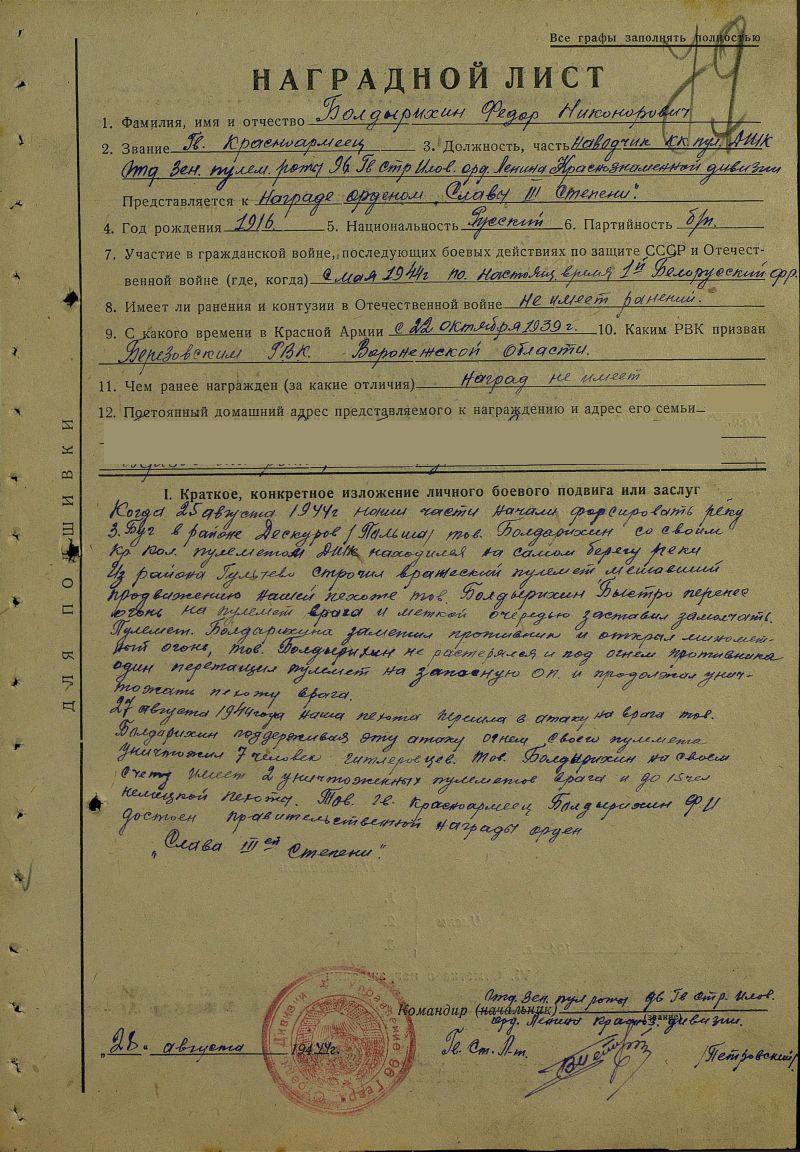 Все графы заполнять полностью
79
НАГРАДНОЙ ЛИСТ
1. Фамилия, имя и отчество Болдырихин Федор Никонорович
2. Звание Гв. Красноармеец 3. Должность, часть Наводчик кк. пул. ДШК
Отд. Зен. пулем. роты 96 Гв Стр Илов. орд. Ленина Краснознаменной дивизии
Представляется к Награде орденом „Славы III Степени".
4. Год рождения 1916 5. Национальность Русский 6. Партийность б/п.
7. Участие в гражданской войне, последующих боевых действиях по защите СССР и Отечест-
венной войне (где, когда) с мая 1944г по. настоящ время 1й Белорусский фр.
8. Имеет ли ранения и контузии в Отечественной войне не имеет ранений.
9. С какого времени в Красной Армии с 22 октября 1939 г. 10. Каким РВК призван
Березовским РВК. Воронежской Области.
11. Чем ранее награжден (за какие отличия) наград не имеет
12. Постоянный домашний адрес представляемого к награждению и адрес его семьи
I. Краткое, конкретное изложение личного боевого подвига или заслуг
Когда 25 августа 1944г наши части начали форсировать реку
З. Буг в районе Дескуров (Польша) тов. Болдарихин со своим
Кр Кол. пулеметом ДШК находился на самом берегу реки
Из района Гультево строчил вражеский пулемет мешавший
продвижению нашей пехоте тов. Болдырихин Быстро перенес
огонь на пулемет врага и меткой очередью заставил замолчать.
Пулемет. Болдарихина заметил противник и открал миномет-
ный огонь, тов. Болдырихин не растерялся и под огнем противника
один перетащил пулемет на запасную оп. и продолжал унич-
тожать пехоту врага.
27 августа 1944 года наша пехота перешла в атаку на врага тов.
Болдарихин поддерживая эту атаку огнем своего пулемета
уничтожил 7 человек гитлеровцев. Тов. Болдырихин на своем
счету имеет 2 уничтоженных пулеметов врага и до 15 чел
немецкой пехоты. Тов. Гв. Красноармеец Болдырихин Ф И
достоен правительственной награды орден
„Слава III ей Степени".
ДЛЯ ПОДШИВКИ
Командир (начальник) Отд. Зен. пул роты 96 Гв Стр. Илов.
орд. Ленина Красноз. дивизии.
(звание)
„28" августа 1944г.
Гв. Ст. Л-т.
/Петровский/
Управление 96 Гвард. Стрелк. Дивизии